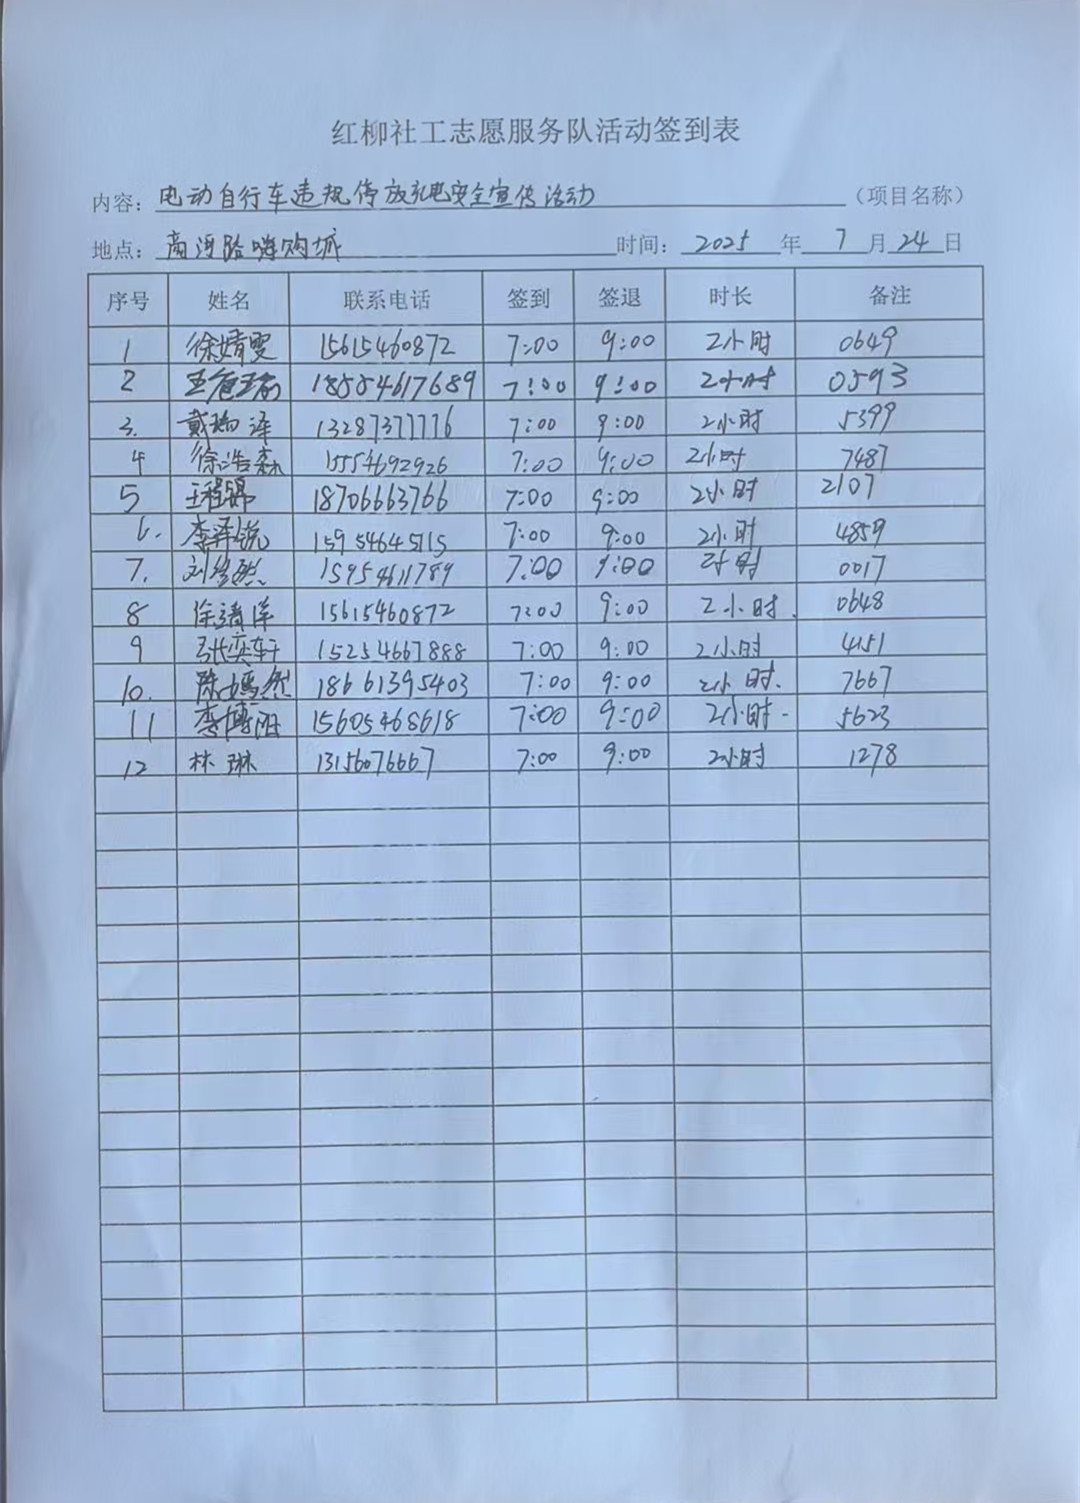 红柳社工志愿服务队活动签到表
内容：电动自行车违规停放充电安全宣传活动（项目名称）
地点：商河路嗨购城 时间：2025年7月24日
序号 姓名 联系电话 签到 签退 时长 备注
1 徐婧雯 15615460872 7:00 9:00 2小时 0649
2 18554617689 7:00 9:00 2小时 0593
3. 戴瑞泽 13287377776 7:00 9:00 2小时 5399
4 徐浩森 1554692926 7:00 9:00 2小时 7487
5 王程锦 18706663766 7:00 9:00 2小时 2107
6. 李泽锐 15954645115 7:00 9:00 2小时 4859
7. 刘 15954611789 7:00 9:00 2小时 0017
8 徐靖洋 15615460872 7:00 9:00 2小时. 0648
9 张奕轩 15254667888 7:00 9:00 2小时 4151
10. 陈嫣然 18661395403 7:00 9:00 2小时. 7667
11 李博涵 15605468618 7:00 9:00 2小时- 5623
12 林琳 13156076667 7:00 9:00 2小时 1278